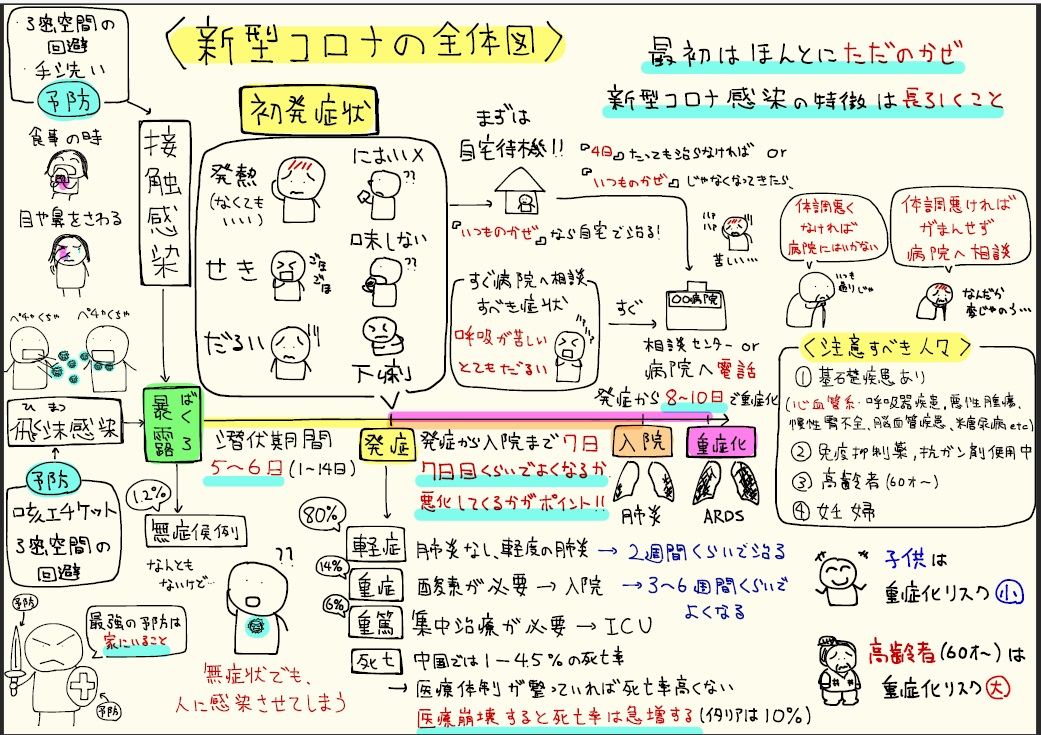 〈新型コロナの全体図〉
最初はほんとにただのかぜ
新型コロナ感染の特徴は長引くこと
・3密空間の
回避
・手洗い
予防
食事の時
目や鼻をさわる
接触感染
ペチャくちゃ
ペチャくちゃ
ひまつ
飛沫感染
予防
咳エチケット
3密空間の
回避
予防
最強の予防は
家にいること
予防
初発症状
発熱
(なくても
いい)
においX
??
せき
ごほ
ごほ
味しない
??
だるい
下痢
まずは
自宅待機!!
『いつものかぜ』なら自宅で治る!
『4日』たっても治らなければ or
『いつものかぜ』じゃなくなってきたら、
苦しい…
すぐ病院へ相談
すべき症状
呼吸が苦しい
とてもだるい
すぐ
〇〇病院
相談センター or
病院へ電話
体調悪く
なければ
病院にはいかない
いつも
通りじゃ
体調悪ければ
がまんせず
病院へ相談
なんだか
変じゃのぅ…
〈注意すべき人々〉
① 基礎疾患あり
(心血管系・呼吸器疾患,悪性腫瘍,
慢性腎不全,脳血管疾患,糖尿病etc)
② 免疫抑制薬,抗ガン剤使用中
③ 高齢者(60才〜)
④ 妊婦
ばくろ
暴露
潜伏期間
5〜6日(1〜14日)
発症
発症から入院まで7日
7日目くらいでよくなるか
悪化してくるかがポイント!!
発症から8〜10日で重症化
入院
重症化
肺炎
ARDS
1.2%
無症候例
なんとも
ないけど…
??
無症状でも、
人に感染させてしまう
80%
軽症 肺炎なし,軽度の肺炎→2週間くらいで治る
14%
重症 酸素が必要→入院 →3〜6週間くらいで
よくなる
6%
重篤 集中治療が必要→ICU
死亡 中国では1-4.5%の死亡率
→医療体制が整っていれば死亡率高くない
医療崩壊すると死亡率は急増する(イタリアは10%)
子供は
重症化リスク小
高齢者(60才〜)は
重症化リスク大